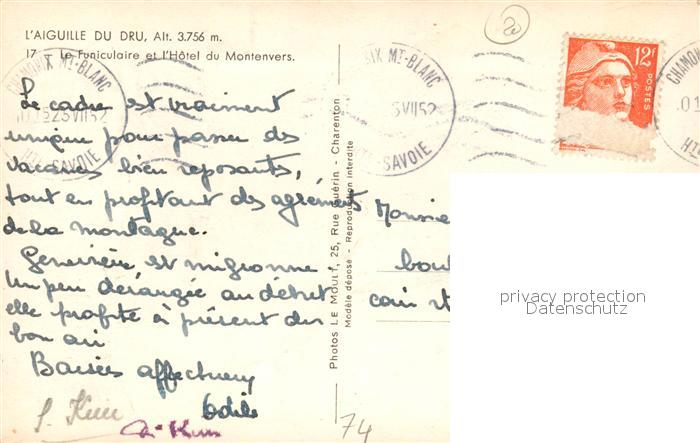 L'AIGUILLE DU DRU, Alt. 3.756 m.
17 - Le Funiculaire et l'Hôtel du Montenvers.
CHAMONIX MT-BLANC
23 VII 52
HTE-SAVOIE
IX MT-BLANC
3 VII 52
SAVOIE
12F
POSTES
CHAMO
Le cadre est vraiment
unique pour passer des
vacances bien reposantes,
tout en profitant des agréments
de la montagne.
Geneviève est mignonne
Un peu dérangée au début
elle profite à présent du
bon air
Baisers affectueux
Odile
Photos LE MOULT, 25, Rue Guérin - Charenton
Modèle déposé - Reproduction interdite
Monsie
74
privacy protection
Datenschutz